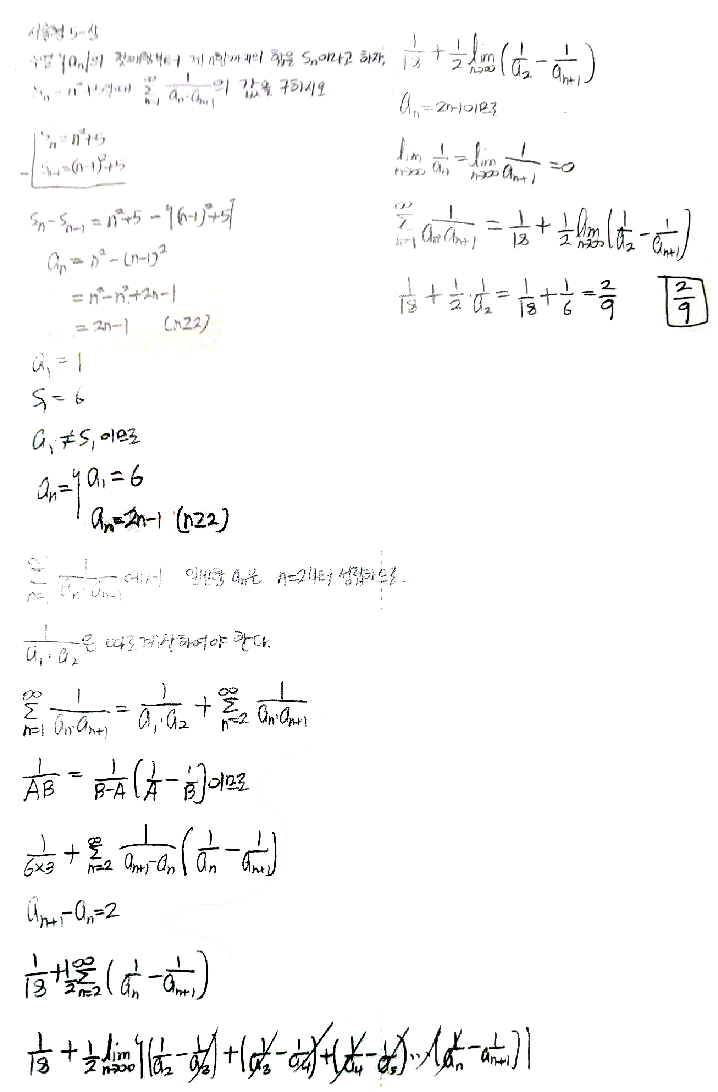 서술형 5-상
수열 {aₙ}의 첫째항부터 제 n항까지의 합을 Sₙ이라고 하자.
Sₙ = n²+5일 때 ∑_{n=1}^{∞} 1/(aₙ·aₙ₊₁)의 값을 구하시오
Sₙ = n²+5
- Sₙ₋₁ = (n-1)²+5
Sₙ - Sₙ₋₁ = n²+5 - {(n-1)²+5}
aₙ = n² - (n-1)²
= n² - n² + 2n - 1
= 2n-1 (n≥2)
a₁ = 1
S₁ = 6
a₁ ≠ S₁ 이므로
aₙ = { a₁ = 6
aₙ = 2n-1 (n≥2)
∑_{n=1}^{∞} 1/(aₙ·aₙ₊₁) 에서 일반항 aₙ은 n=2부터 성립하므로..
1/(a₁·a₂)은 따로 계산하여야 한다.
∑_{n=1}^{∞} 1/(aₙ·aₙ₊₁) = 1/(a₁·a₂) + ∑_{n=2}^{∞} 1/(aₙ·aₙ₊₁)
1/AB = 1/(B-A) (1/A - 1/B) 이므로
1/(6×3) + ∑_{n=2}^{∞} 1/(aₙ₊₁-aₙ) (1/aₙ - 1/aₙ₊₁)
aₙ₊₁ - aₙ = 2
1/18 + 1/2 ∑_{n=2}^{∞} (1/aₙ - 1/aₙ₊₁)
1/18 + 1/2 lim_{n→∞} {(1/a₂ - 1/a₃) + (1/a₃ - 1/a₄) + (1/a₄ - 1/a₅) ... (1/aₙ - 1/aₙ₊₁)}
1/18 + 1/2 lim_{n→∞} (1/a₂ - 1/aₙ₊₁)
aₙ = 2n-1 이므로
lim_{n→∞} 1/aₙ = lim_{n→∞} 1/aₙ₊₁ = 0
∑_{n=1}^{∞} 1/(aₙ·aₙ₊₁) = 1/18 + 1/2 lim_{n→∞} (1/a₂ - 1/aₙ₊₁)
1/18 + 1/2 · 1/a₂ = 1/18 + 1/6 = 2/9 2/9